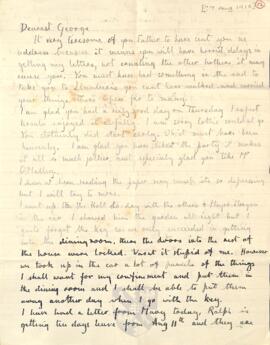 Dearest George
It very tiresome of you father to have sent you no
address because it means you will have horrid delays in
getting my letters, not counting the other bothers it may
cause you. You must have had something on the road to
take you to
your things
I am glad you had a nice good day on Thursday I expect
You certainly did start early. Which must have been
heavenly. I am glad you have liked the party it makes
it all so much jollier, and especially glad you like Mr
O'Malley.
I haven't been reading the paper very much its so depressing
but I will try to more.
I went up to the Holt to-day with the others &
in the car. I showed them the garden all right but I
quite forgot the key so we only succeeded in getting
into the dining room, then the doors into the rest of
the house were locked. Wasn't it stupid of me. However
we took up in the car a lot of parcels of the things
I shall want for my confinement and put them in
the dining room and I shall be able to put them
away another day when I go with the key.
I have had a letter from Mary today, Ralph is
getting ten days leave from Aug 11th and they are